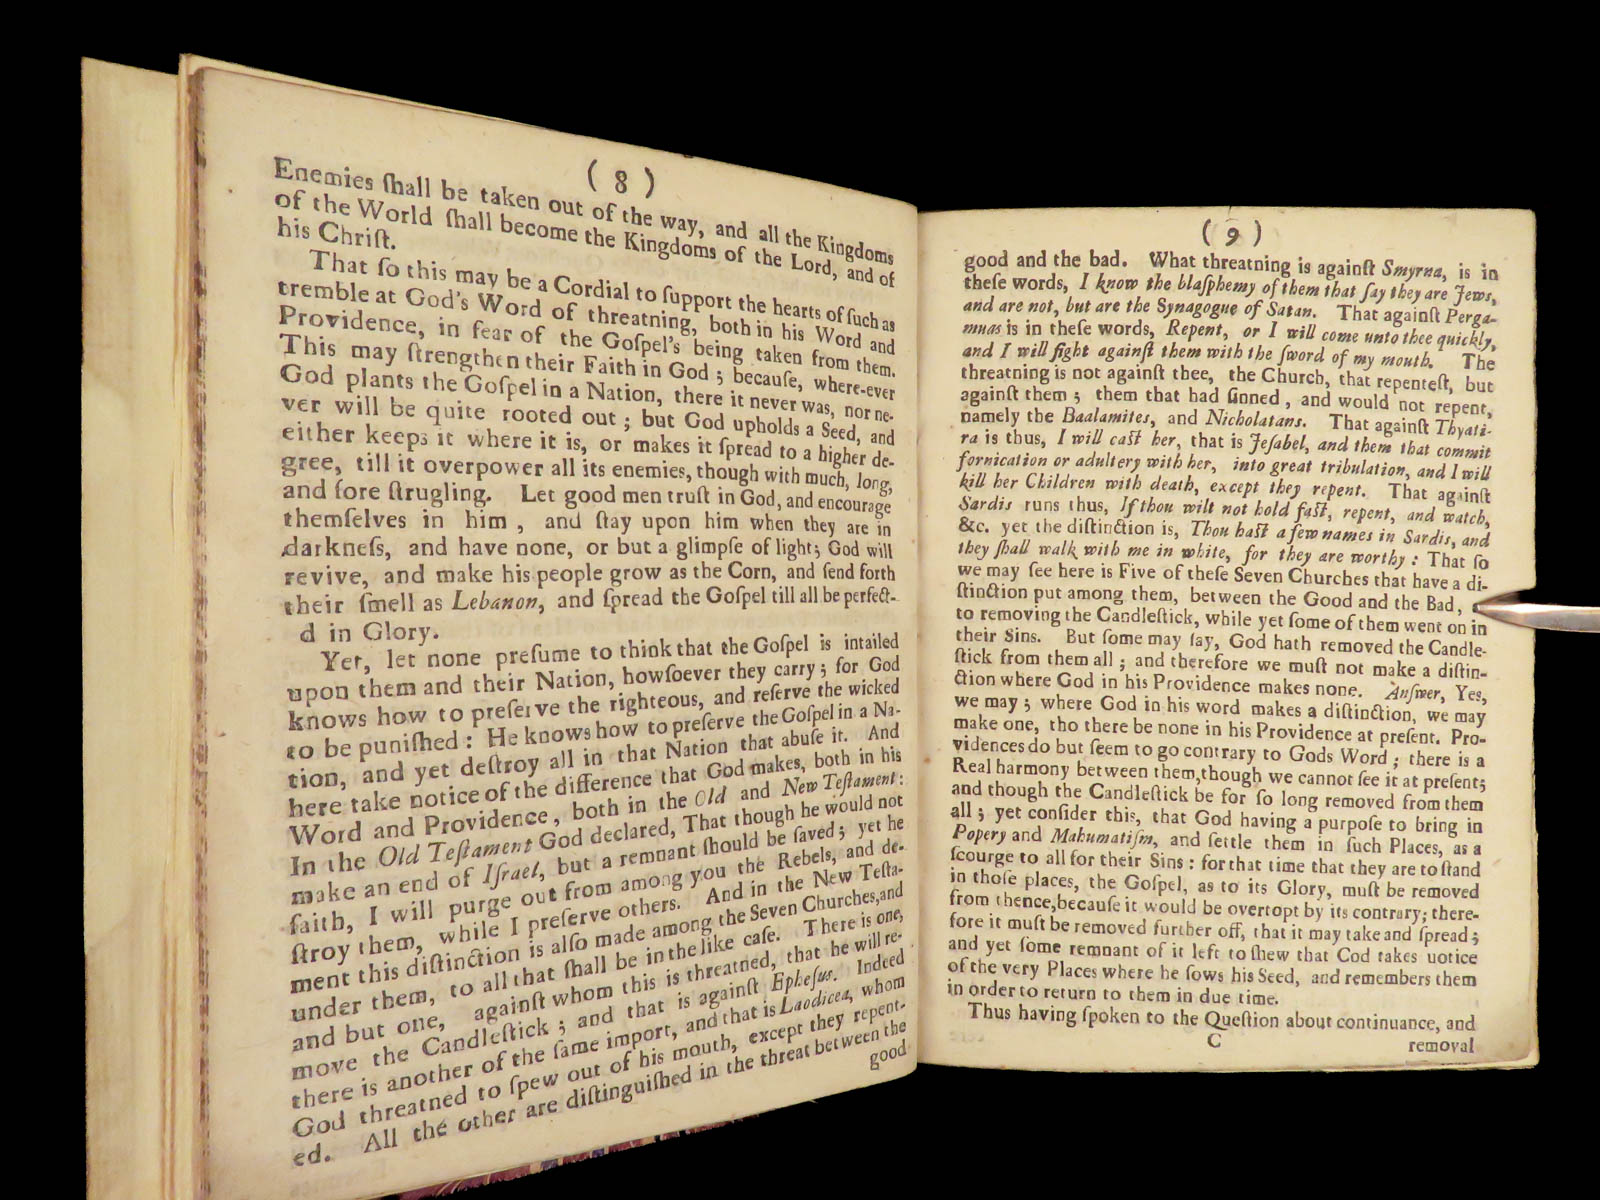 ( 8 )
Enemies ſhall be taken out of the way, and all the Kingdoms
of the World ſhall become the Kingdoms of the Lord, and of
his Chriſt.
That ſo this may be a Cordial to ſupport the hearts of ſuch as
tremble at God's Word of threatning, both in his Word and
Providence, in fear of the Goſpel's being taken from them.
This may ſtrengthen their Faith in God ; becauſe, where-ever
God plants the Goſpel in a Nation, there it never was, nor ne-
ver will be quite rooted out ; but God upholds a Seed, and
either keeps it where it is, or makes it ſpread to a higher de-
gree, till it overpower all its enemies, though with much, long,
and ſore ſtrugling. Let good men truſt in God, and encourage
themſelves in him , and ſtay upon him when they are in
darkneſs, and have none, or but a glimpſe of light; God will
revive, and make his people grow as the Corn, and ſend forth
their ſmell as Lebanon, and ſpread the Goſpel till all be perfect-
d in Glory.
Yet, let none preſume to think that the Goſpel is intailed
upon them and their Nation, howſoever they carry ; for God
knows how to preſerve the righteous, and reſerve the wicked
to be puniſhed : He knows how to preſerve the Goſpel in a Na-
tion, and yet deſtroy all in that Nation that abuſe it. And
here take notice of the difference that God makes, both in his
Word and Providence, both in the Old and New Teſtament :
In the Old Teſtament God declared, That though he would not
make an end of Iſrael, but a remnant ſhould be ſaved ; yet he
ſaith, I will purge out from among you the Rebels, and de-
ſtroy them, while I preſerve others. And in the New Teſta-
ment this diſtinction is alſo made among the Seven Churches,and
under them, to all that ſhall be in the like caſe. There is one,
and but one, againſt whom this is threatned, that he will re-
move the Candleſtick ; and that is againſt Epheſus. Indeed
there is another of the ſame import, and that is Laodicea, whom
God threatned to ſpew out of his mouth, except they repent-
ed. All the other are diſtinguiſhed in the threat between the
good
( 9 )
good and the bad. What threatning is againſt Smyrna, is in
theſe words, I know the blaſphemy of them that ſay they are Jews,
and are not, but are the Synagogue of Satan. That againſt Perga-
muas is in theſe words, Repent, or I will come unto thee quickly,
and I will fight againſt them with the ſword of my mouth. The
threatning is not againſt thee, the Church, that repenteſt, but
againſt them ; them that had ſinned , and would not repent,
namely the Baalamites, and Nicholatans. That againſt Thyati-
ra is thus, I will caſt her, that is Jeſabel, and them that commit
fornication or adultery with her, into great tribulation, and I will
kill her Children with death, except they repent. That againſt
Sardis runs thus, If thou wilt not hold faſt, repent, and watch,
&c. yet the diſtinction is, Thou haſt a few names in Sardis, and
they ſhall walk with me in white, for they are worthy : That ſo
we may ſee here is Five of theſe Seven Churches that have a di-
ſtinction put among them, between the Good and the Bad,
to removing the Candleſtick, while yet ſome of them went on in
their Sins. But ſome may ſay, God hath removed the Candle-
ſtick from them all ; and therefore we muſt not make a diſtin-
ction where God in his Providence makes none. Anſwer, Yes,
we may ; where God in his word makes a diſtinction, we may
make one, tho there be none in his Providence at preſent. Pro-
vidences do but ſeem to go contrary to Gods Word ; there is a
Real harmony between them,though we cannot ſee it at preſent;
and though the Candleſtick be for ſo long removed from them
all ; yet conſider this, that God having a purpoſe to bring in
Popery and Mahumatiſm, and ſettle them in ſuch Places, as a
ſcourge to all for their Sins : for that time that they are to ſtand
in thoſe places, the Goſpel, as to its Glory, muſt be removed
from thence,becauſe it would be overtopt by its contrary; there-
fore it muſt be removed further off, that it may take and ſpread ;
and yet ſome remnant of it left to ſhew that God takes uotice
of the very Places where he ſows his Seed, and remembers them
in order to return to them in due time.
Thus having ſpoken to the Queſtion about continuance, and
C
removal